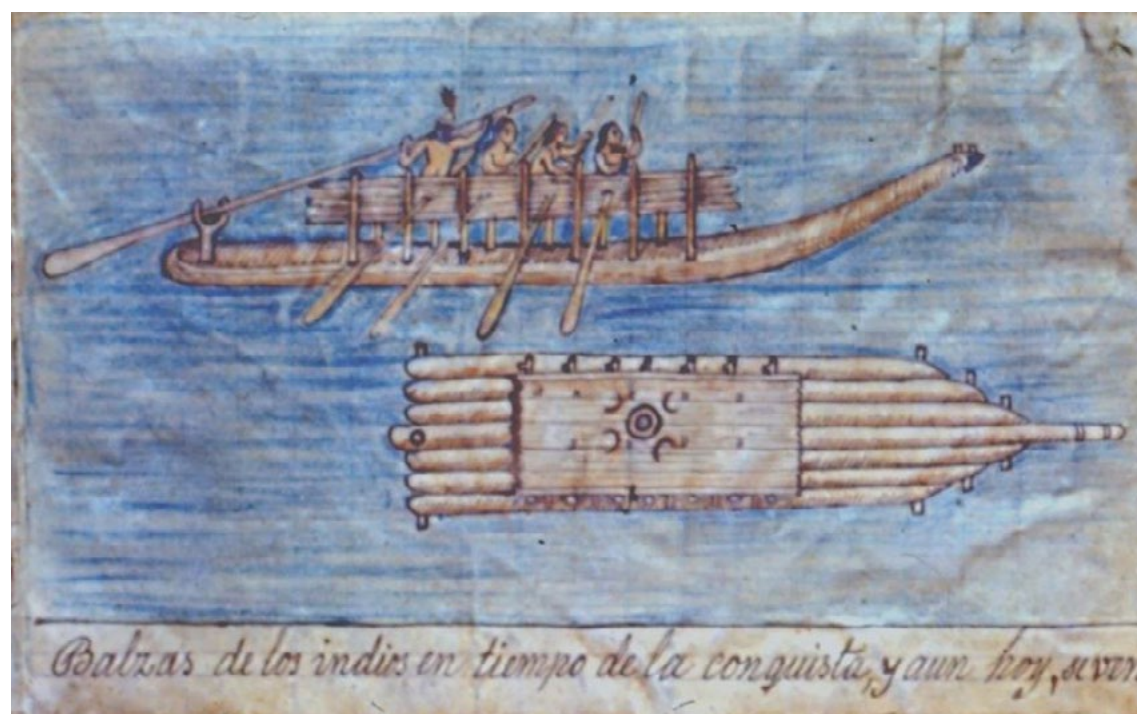 Balzas de los indios en tiempo de la conquista, y aun hoy, se ven